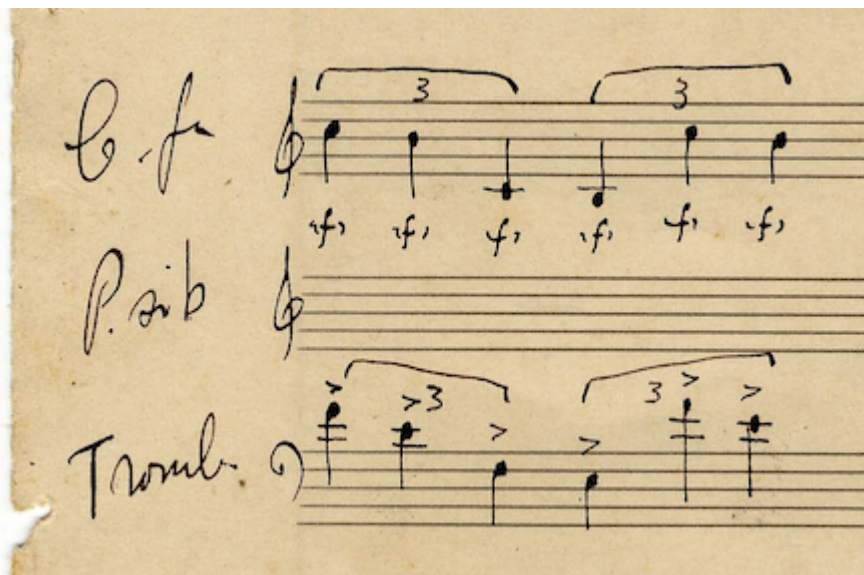 C. fa
3 3
f f f f f f
P. sib
3 3
Tromb.